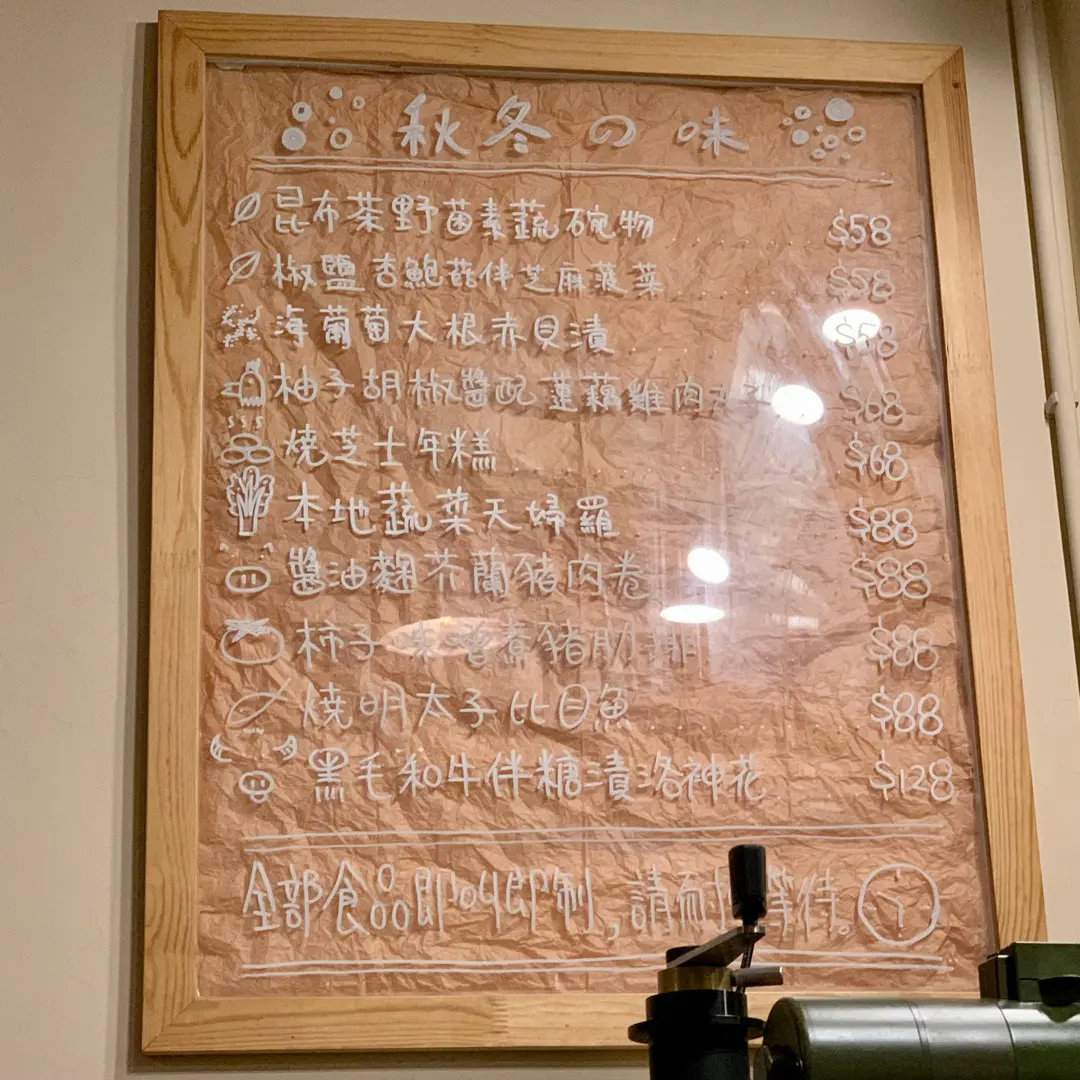 秋冬の味
昆布茶野菌素蔬碗物 $58
椒鹽杏鮑菇伴芝麻菠菜 $58
海葡萄大根赤貝漬 $58
柚子胡椒醬配蓮藕雞肉 $68
燒芝士年糕 $68
本地蔬菜天婦羅 $88
醬油麴芥蘭豬肉卷 $88
柿子味噌煮豬肋排 $88
燒明太子比目魚 $88
黑毛和牛伴糖漬洛神花 $128
全部食品即叫即制,請耐等待。